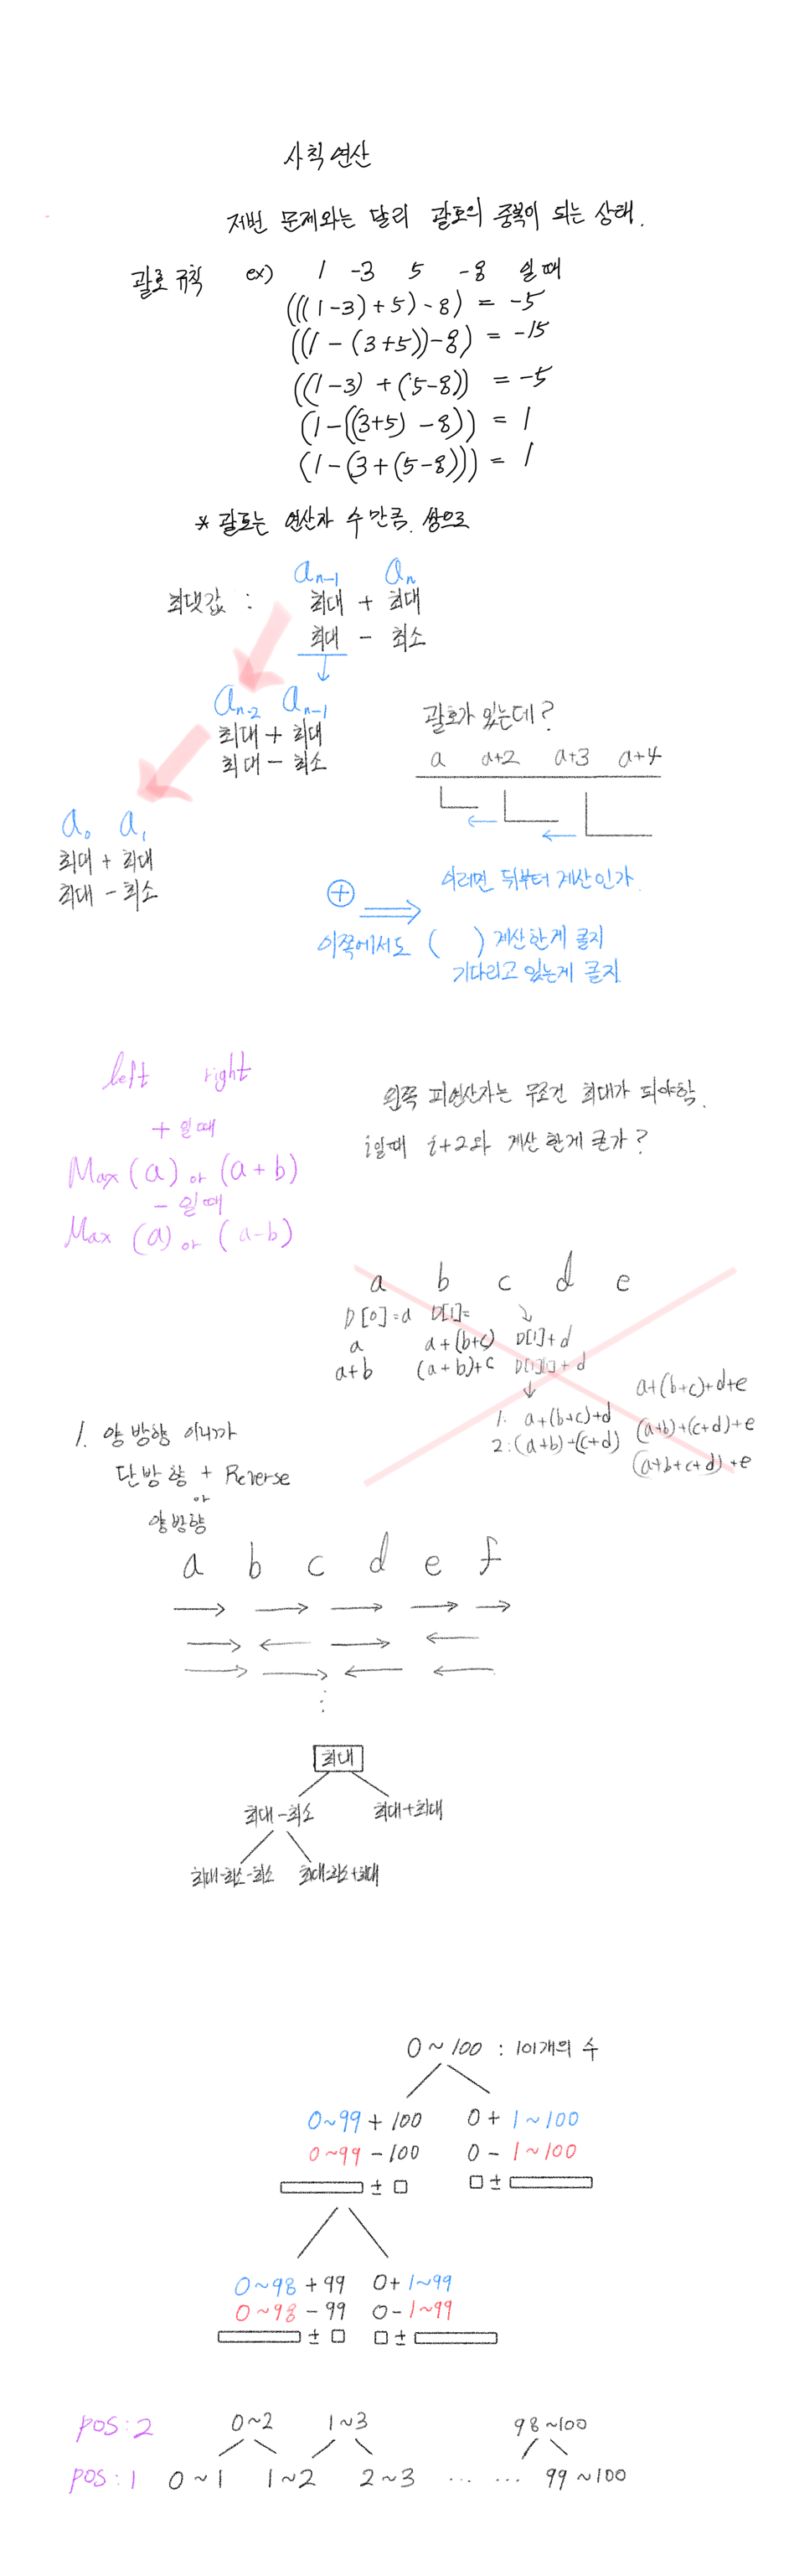 사칙연산
저번 문제와는 달리 괄호의 중복이 되는 상태.
괄호 규칙 ex) 1 -3 5 -8 일 때
(((1-3)+5)-8) = -5
((1-(3+5))-8) = -15
((1-3)+(5-8)) = -5
(1-((3+5)-8)) = 1
(1-(3+(5-8))) = 1
* 괄호는 연산자 수 만큼. 쌍으로
aₙ₋₁ aₙ
최댓값 : 최대 + 최대
최대 - 최소
aₙ₋₂ aₙ₋₁
최대 + 최대
최대 - 최소
괄호가 있는데?
a a+2 a+3 a+4
a₀ a₁
최대 + 최대
최대 - 최소
이러면 뒤부터 계산인가.
+ ⇒
이쪽에서도 ( ) 계산한게 클지
기다리고 있는게 클지
left right
+ 일때
Max (a) or (a+b)
- 일때
Max (a) or (a-b)
왼쪽 피연산자는 무조건 최대가 되야함.
i일때 i+2와 계산한게 큰가?
a b c d e
D[0]=a D[1]= ↘
a a+(b+c) D[1]+d
a+b (a+b)+c D[1][1]+d
↓
1. a+(b+c)+d
2:(a+b)+(c+d)
a+(b+c)+d+e
(a+b)+(c+d)+e
(a+b+c+d)+e
1. 양방향 이니까
단방향 + Reverse
or
양방향
a b c d e f
→ → → → →
→ ← → ←
→ → ← ←
⋮
최대
최대-최소 최대+최대
최대-최소-최소 최대-최소+최대
0~100 : 101개의 수
0~99+100 0+1~100
0~99-100 0-1~100
± ±
0~98+99 0+1~99
0~98-99 0-1~99
± ±
pos:2 0~2 1~3 98~100
pos:1 0~1 1~2 2~3 ... ... 99~100